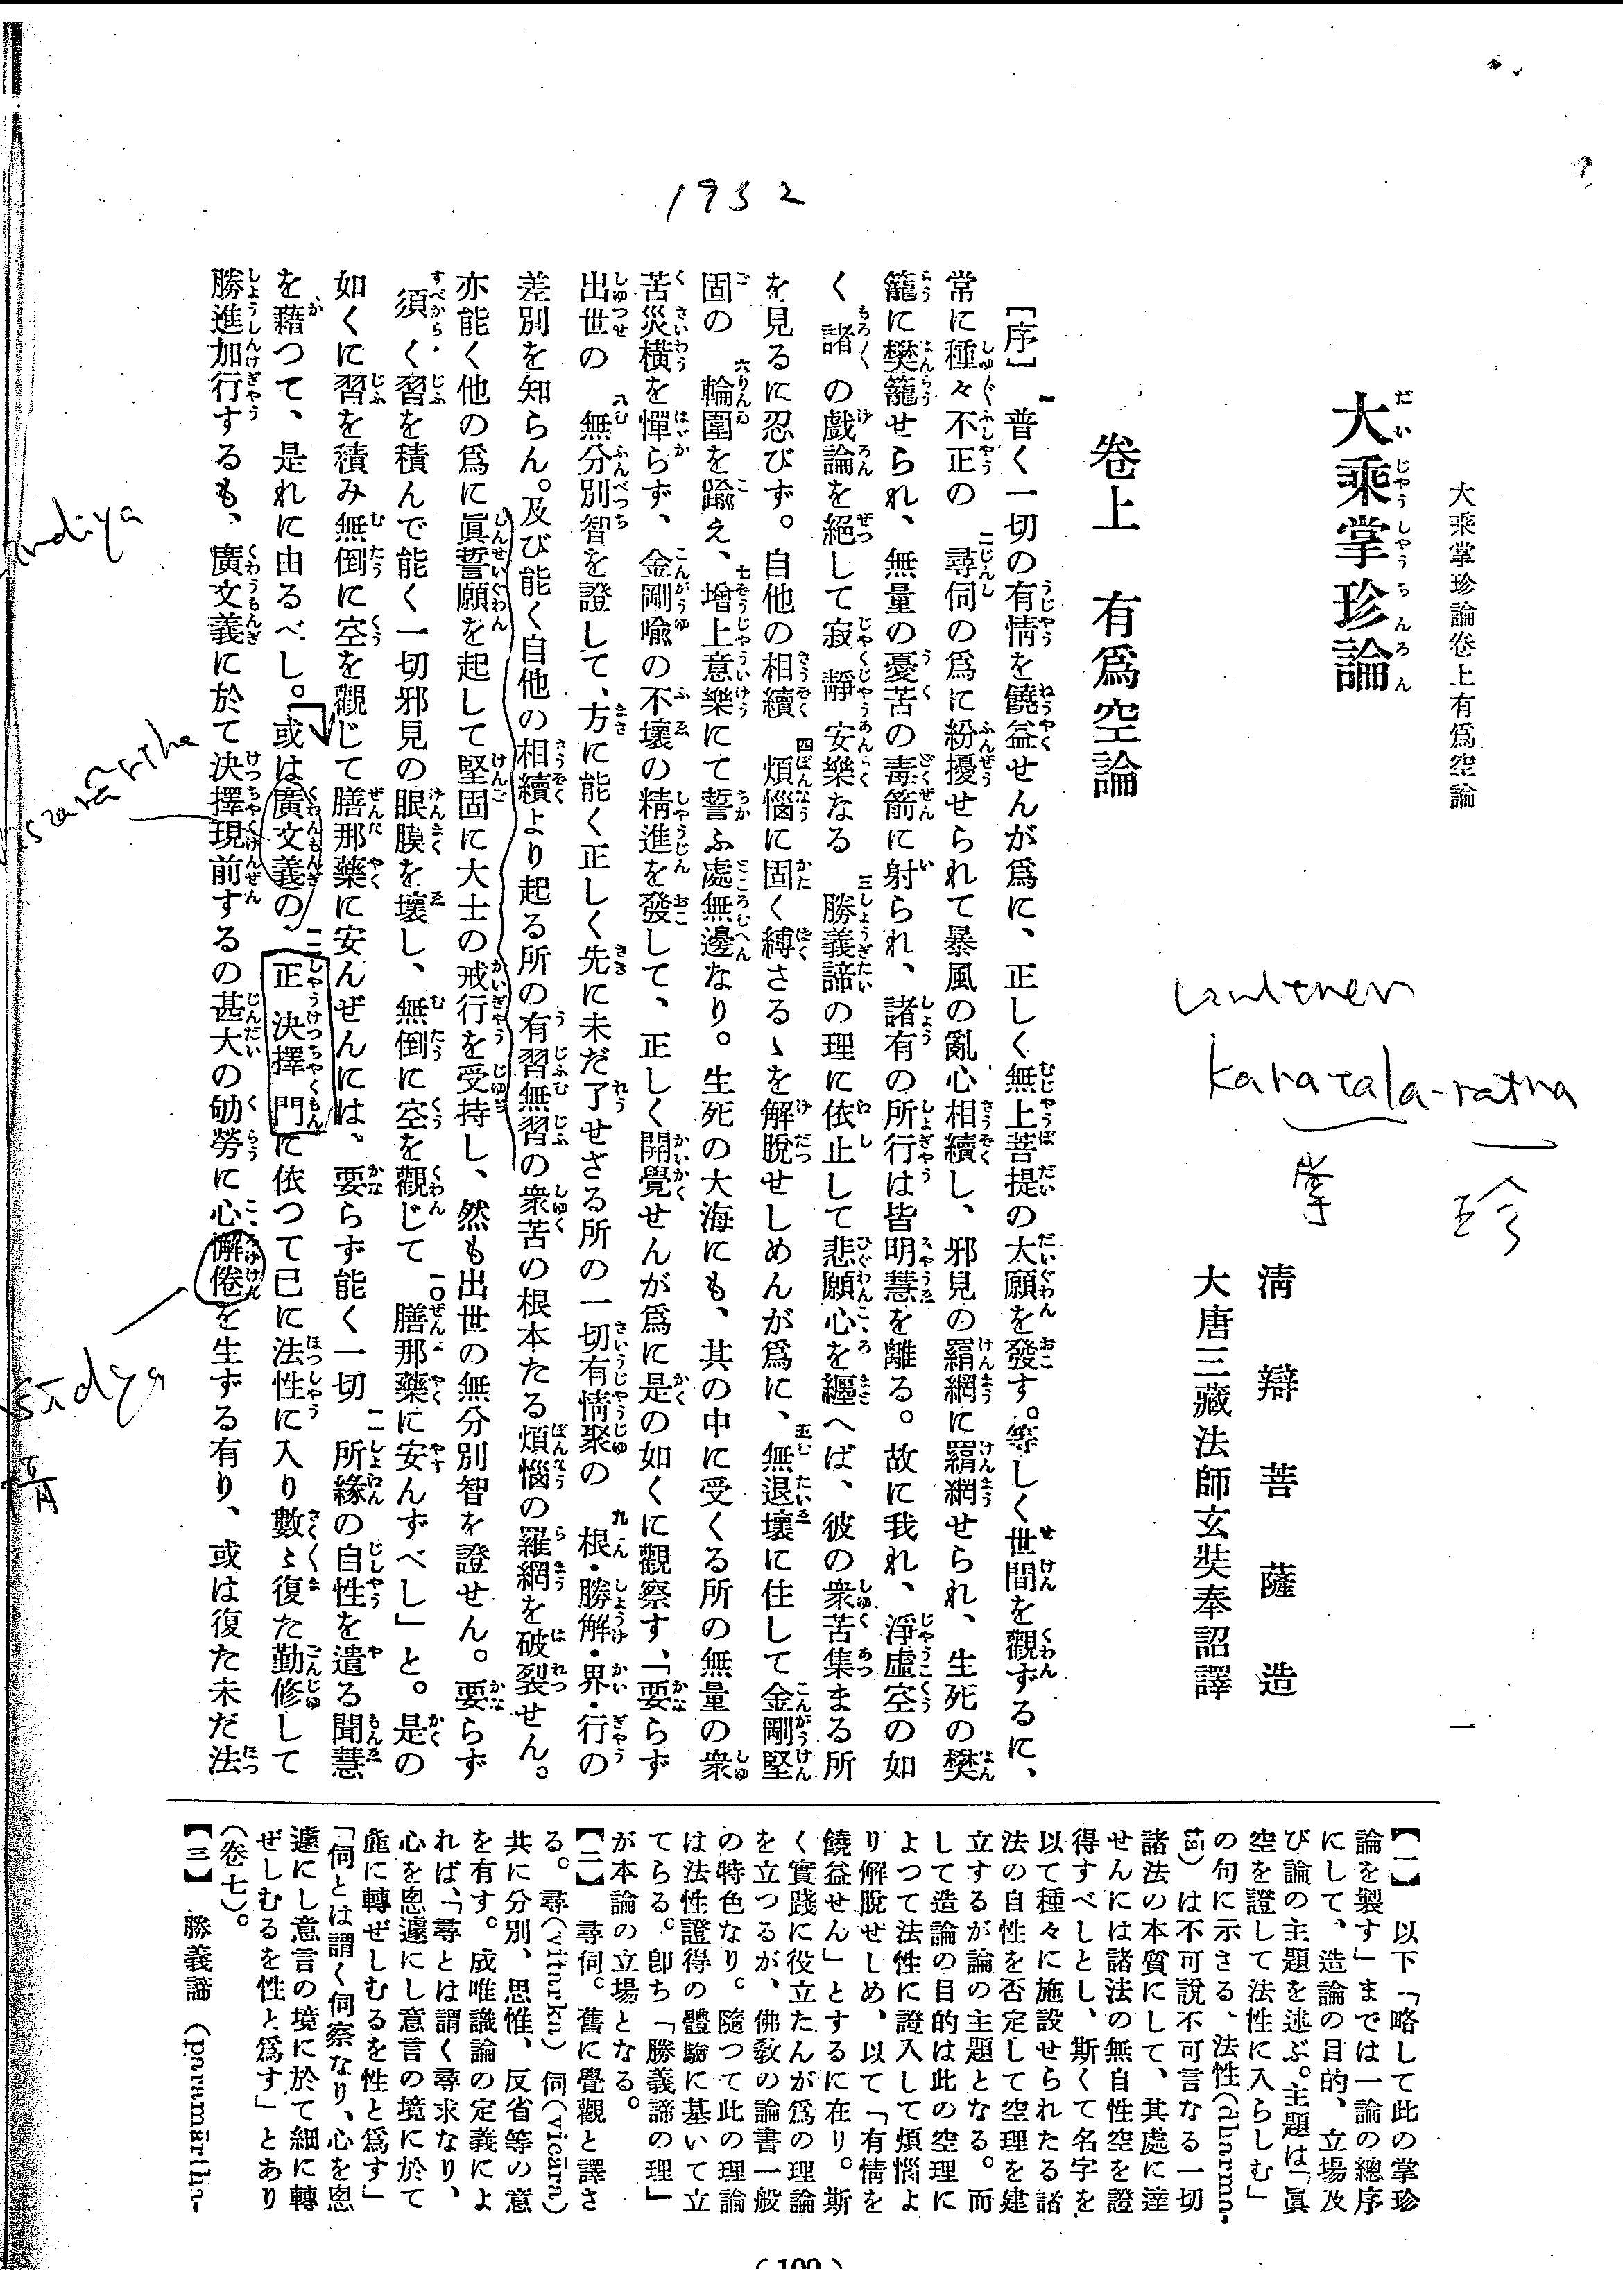 1932
大乘掌珍論卷上有爲空論
一
大乘掌珍論
清辯菩薩造
大唐三藏法師玄奘奉詔譯
卷上 有爲空論
karatala-ratna
掌
珍
［序］ 一普く一切の有情を饒益せんが爲に、正しく無上菩提の大願を發す。等しく世間を觀ずるに、
常に種々不正の 二尋伺の爲に紛擾せられて暴風の亂心相續し、邪見の羂網に羂網せられ、生死の樊
籠に樊籠せられ、無量の憂苦の毒箭に射られ、諸有の所行は皆明慧を離る。故に我れ、淨虛空の如
く諸の戲論を絕して寂靜安樂なる 三勝義諦の理に依止して悲願心を纒へば、彼の衆苦集まる所
を見るに忍びず。自他の相續 四煩惱に固く縛さるゝを解脫せしめんが爲に、五無退壞に住して金剛堅
固の 六輪圍を踰え、七增上意樂にて誓ふ處無邊なり。生死の大海にも、其の中に受くる所の無量の衆
苦災橫を憚らず、金剛喩の不壞の精進を發して、正しく開覺せんが爲に是の如くに觀察す、「要らず
出世の 八無分別智を證して、方に能く正しく先に未だ了せざる所の一切有情聚の 九根・勝解・界・行の
差別を知らん。及び能く自他の相續より起る所の有習無習の衆苦の根本たる煩惱の羅網を破裂せん。
亦能く他の爲に眞誓願を起して堅固に大士の戒行を受持し、然も出世の無分別智を證せん。要らず
須く習を積んで能く一切邪見の眼膜を壞し、無倒に空を觀じて 一〇膳那藥に安んずべし」と。是の
如くに習を積み無倒に空を觀じて膳那藥に安んぜんには、要らず能く一切 一一所緣の自性を遣る聞慧
を藉つて、是れに由るべし。或は廣文義の 一二正決擇門に依つて已に法性に入り數〻復た勤修して
勝進加行するも、廣文義に於て決擇現前するの甚大の劬勞に心懈倦を生ずる有り、或は復た未だ法
【一】 以下「略して此の掌珍
論を製す」までは一論の總序
にして、造論の目的、立場及
び論の主題を述ぶ。主題は「眞
空を證して法性に入らしむ」
の句に示さる、法性(dharma-
tā) は不可說不可言なる一切
諸法の本質にして、其處に達
せんには諸法の無自性空を證
得すべしとし、斯くて名字を
以て種々に施設せられたる諸
法の自性を否定して空理を建
立するが論の主題となる。而
して造論の目的は此の空理に
よつて法性に證入して煩惱よ
り解脫せしめ、以て「有情を
饒益せん」とするに在り。斯
く實踐に役立たんが爲の理論
を立つるが、佛敎の論書一般
の特色なり。隨つて此の理論
は法性證得の體驗に基いて立
てらる。卽ち「勝義諦の理」
が本論の立場となる。
【二】 尋伺。舊に覺觀と譯さ
る。尋(vitarka) 伺(vicāra)
共に分別、思惟、反省等の意
を有す。成唯識論の定義によ
れば、「尋とは謂く尋求なり、
心を悤遽にし意言の境に於て
麁に轉ぜしむるを性と爲す」
「伺とは謂く伺察なり、心を悤
遽にし意言の境に於て細に轉
ぜしむるを性と爲す」とあり
(卷七)。
【三】 勝義諦 (paramārtha-